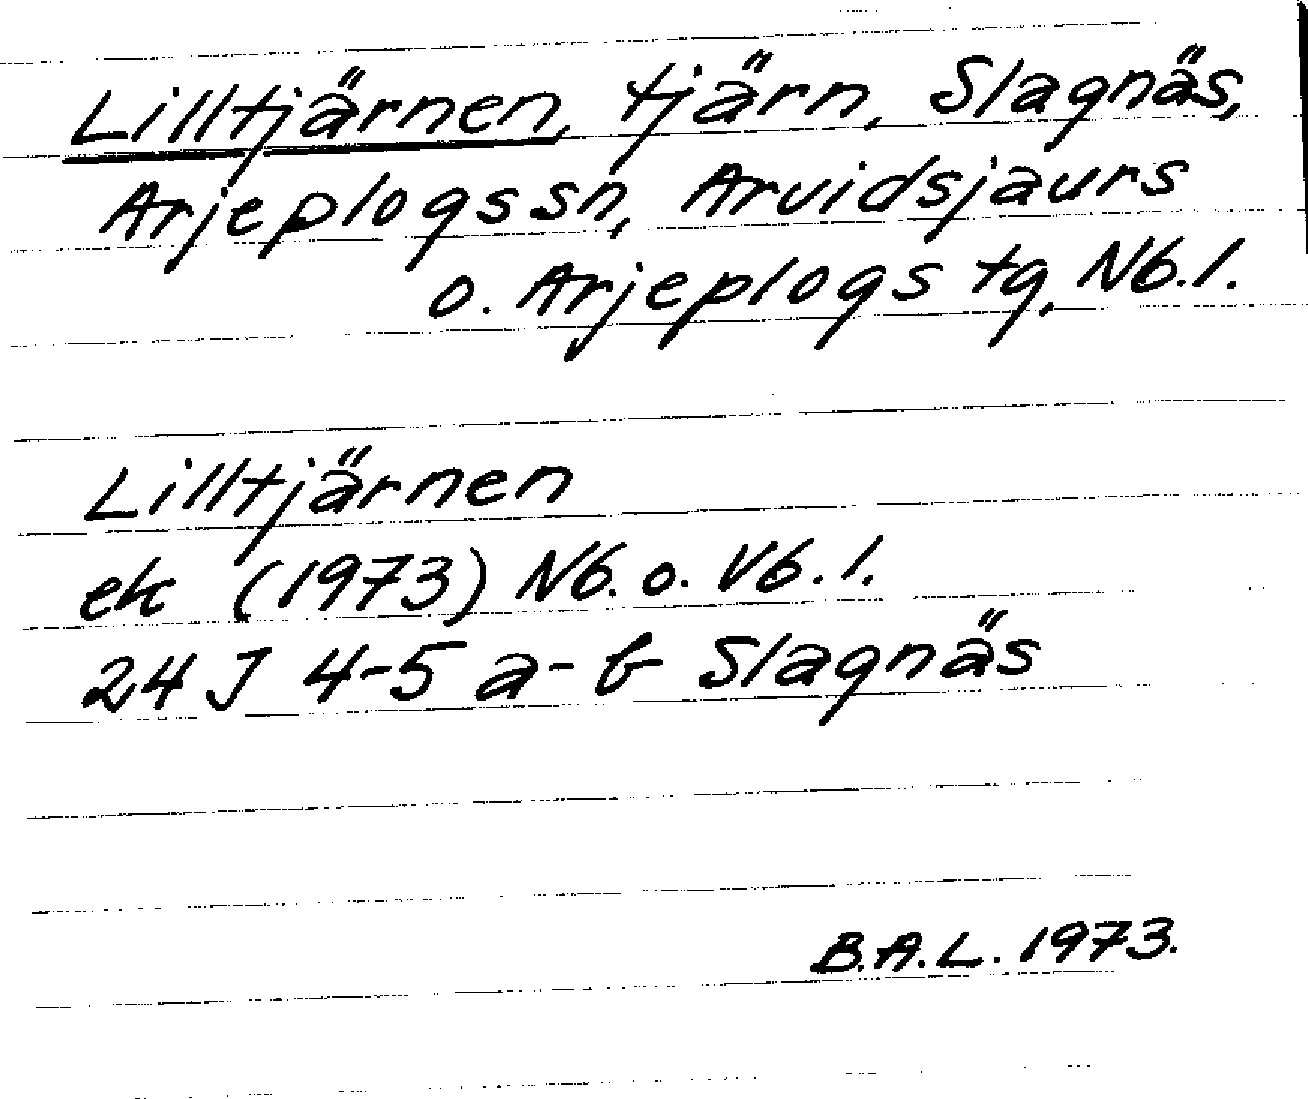 Lilltjärnen, tjärn, Slagnäs,
Arjeplogs sn, Arvidsjaurs
o. Arjeplogs tg, Nb. l.
Lilltjärnen
ek (1973) Nb. o. Vb. l.
24 J 4-5 a-b Slagnäs
B.A.L. 1973.